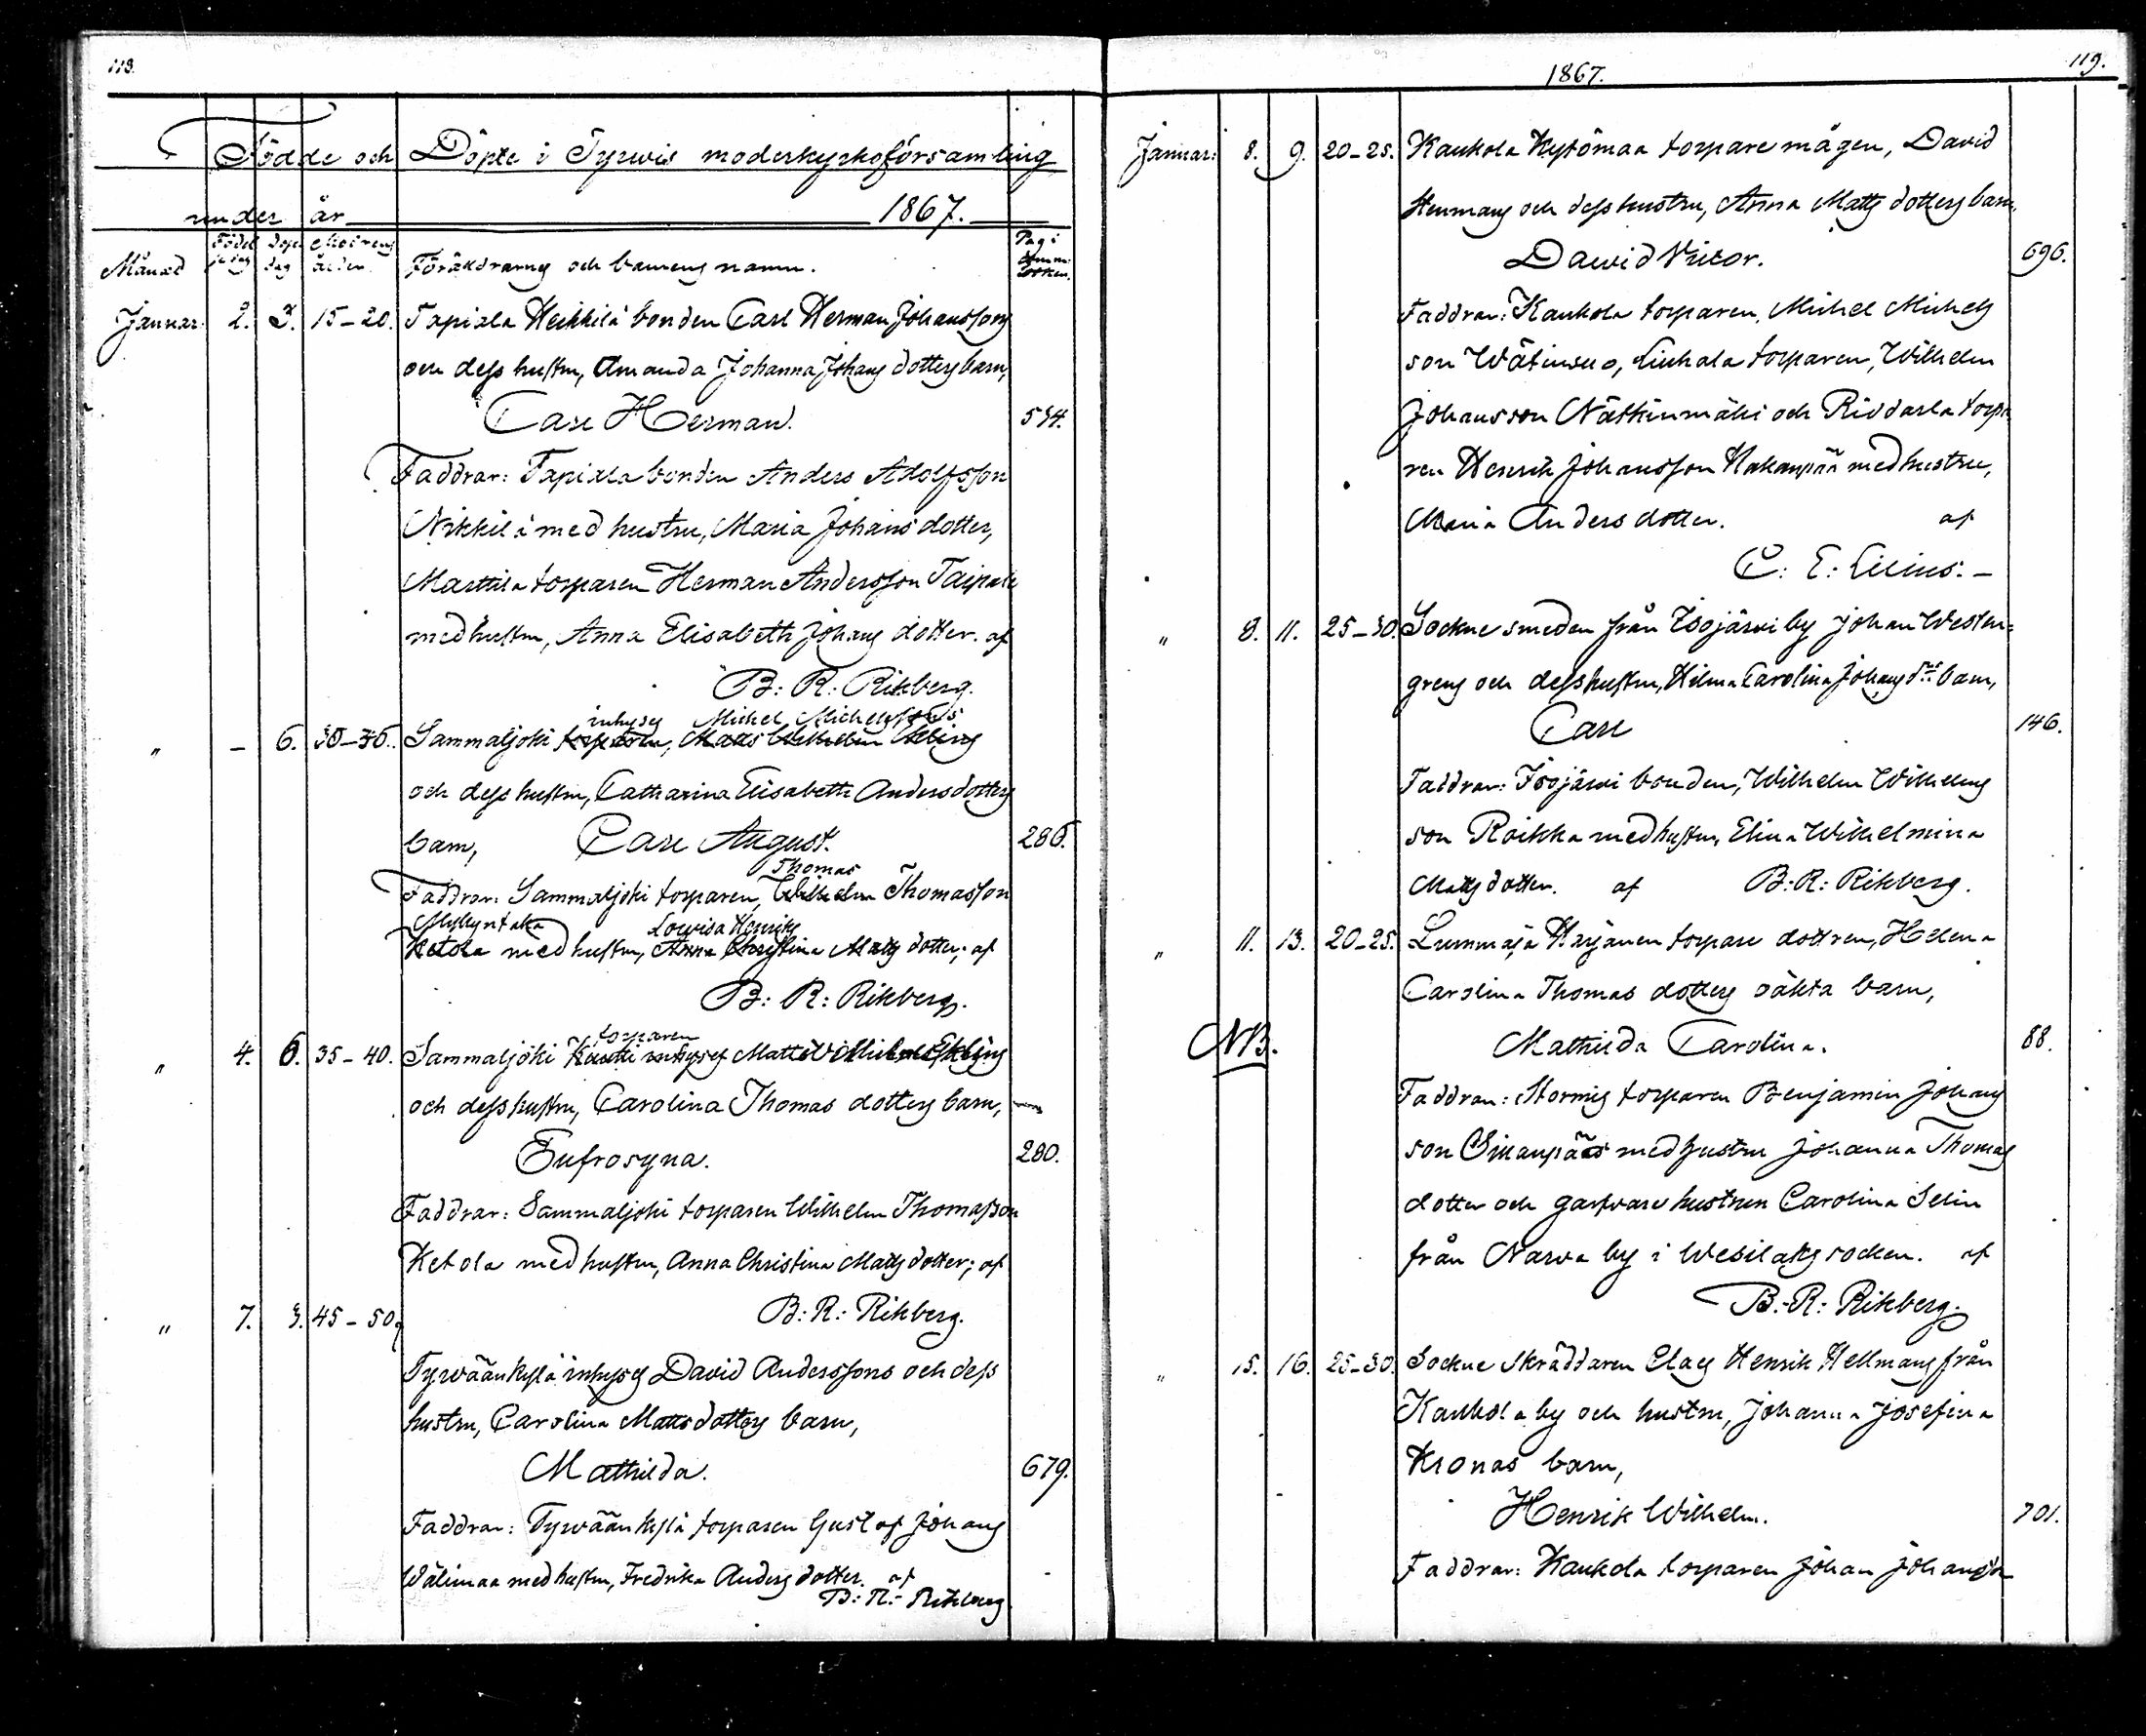 118.
Födde och Döpte i Tyrwis moderkyrkoförsamling
under år 1867.
Månad Födelsedag Döpedag Modrens ålder. Föräldrarnes och barnens namn. Pag: i Komm: boken.
Januar: 2. 3. 15–20. Tapiala Heikkilä bonden Carl Herman Johanssons
och dess hustru, Amanda Johanna Johans dotters barn,
Carl Herman. 534.
Faddrar: Tapiala bonden Anders Adolfsson
Nikkilä med hustru, Maria Johans dotter,
Marttila torparen Herman Andersson Taipale
med hustru, Anna Elisabeth Johans dotter. af
B: R: Rikberg.
inhyses Michel Michelssons
" – 6. 30–35. Sammaljoki torparen, Matts Wilhelm Ekling
och dess hustru, Catharina Elisabeth Andersdotters
barn, Carl August. 286.
Thomas
Faddrar: Sammaljoki torparen, Wilhelm Thomasson
Myllyntaka Lowisa Henriks
Ketola med hustru, Anna Christina Matts dotter; af
B: R: Rikberg.
torparen
" 4. 6. 35–40. Sammaljoki inhyses Matts Wilhelm Eklings
och dess hustru, Carolina Thomas dotters barn,
Eufrosyna. 280.
Faddrar: Sammaljoki torparen Wilhelm Thomasson
Ketola med hustru, Anna Christina Matts dotter; af
B: R: Rikberg.
" 7. 9. 45–50.
Tyrwäänkylä inhyses David Anderssons och dess
hustru, Carolina Mattsdotters barn,
Mathilda. 679.
Faddrar: Tyrwäänkylä torparen Gustaf Johans
Wälimaa med hustru, Fredrika Anders dotter. af
B: R: Rikberg
1867.
119.
Januar: 8. 9. 20–25. Kaukola Kytömaa torpare mågen, David
Hermans och dess hustru, Anna Matts dotters barn,
David Victor. 696.
Faddrar: Kaukola torparen, Michel Michels
son Wätinsuo, Liuhala torparen, Wilhelm
Johansson Näthinmäki och Riddarla torpa
ren Henrik Johansson Hakanpää med hustru,
Maria Anders dotter. af
C: E: Lilius. –
" 8. 11. 25–30. Sockne smeden från Isojärvi by Johan Westen=
grens och dess hustru, Hilma Carolina Johans d:rs barn,
Carl 146.
Faddrar: Isojärvi bonden, Wilhelm Wilhelms
son Roikka med hustru, Elina Wilhelmina
Matts dotter. af B: R: Rikberg.
" 11. 13. 20–25. Lummaja Harjanen torpare dottren, Helena
Carolina Thomas dotters oäkta barn,
NB. Mathilda Carolina. 88.
Faddrar: Stormis torparen Benjamin Johans
son Oikanpää med hustru Johanna Thomas
dotter och garfvare hustrun Carolina Selin
från Narva by i Wesilaks socken. af
B: R: Rikberg.
" 15. 16. 25–30. Sockne skräddaren Claes Henrik Hellmans från
Kaukola by och hustru, Johanna Josefina
Kronas barn,
Henrik Wilhelm. 701.
Faddrar: Kaukola torparen Johan Johansson